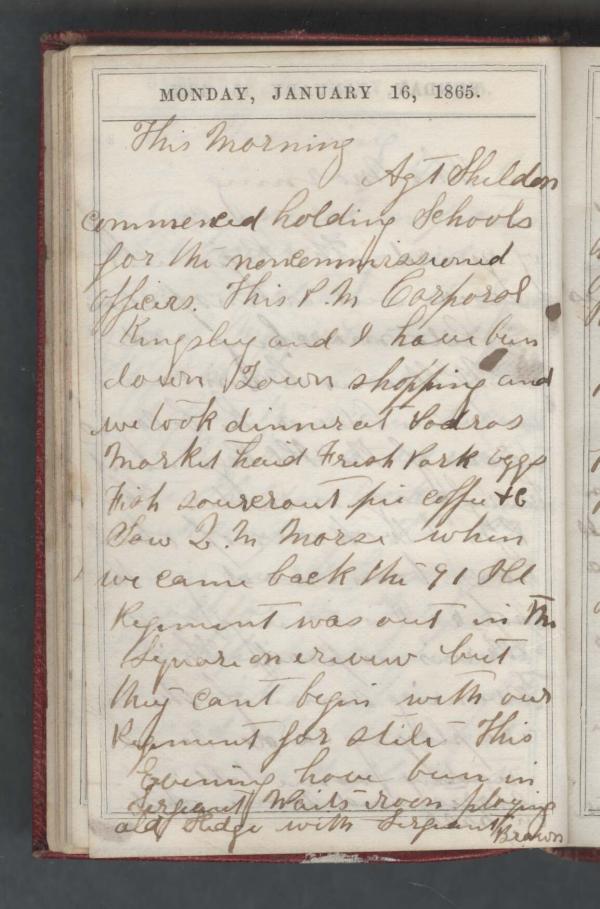 MONDAY, JANUARY 16, 1865.
This Morning
Agt Sheldon
commenced holding Schools
for the noncommissioned
officers. This P.M Corporal
Kingsley and I have bun
down Town shopping and
we took dinner at
Market haid Fresh Pork eggs
Fish sourcrout pie coffee &c
Saw Q.M Morse when
we came back the 91 Ill
Regiment was out in the
Square on review but
they cant begin with our
Regment for stile This
Evening have bun in
Sergeant Waits room playing
old Sledge with Sergeant Brown